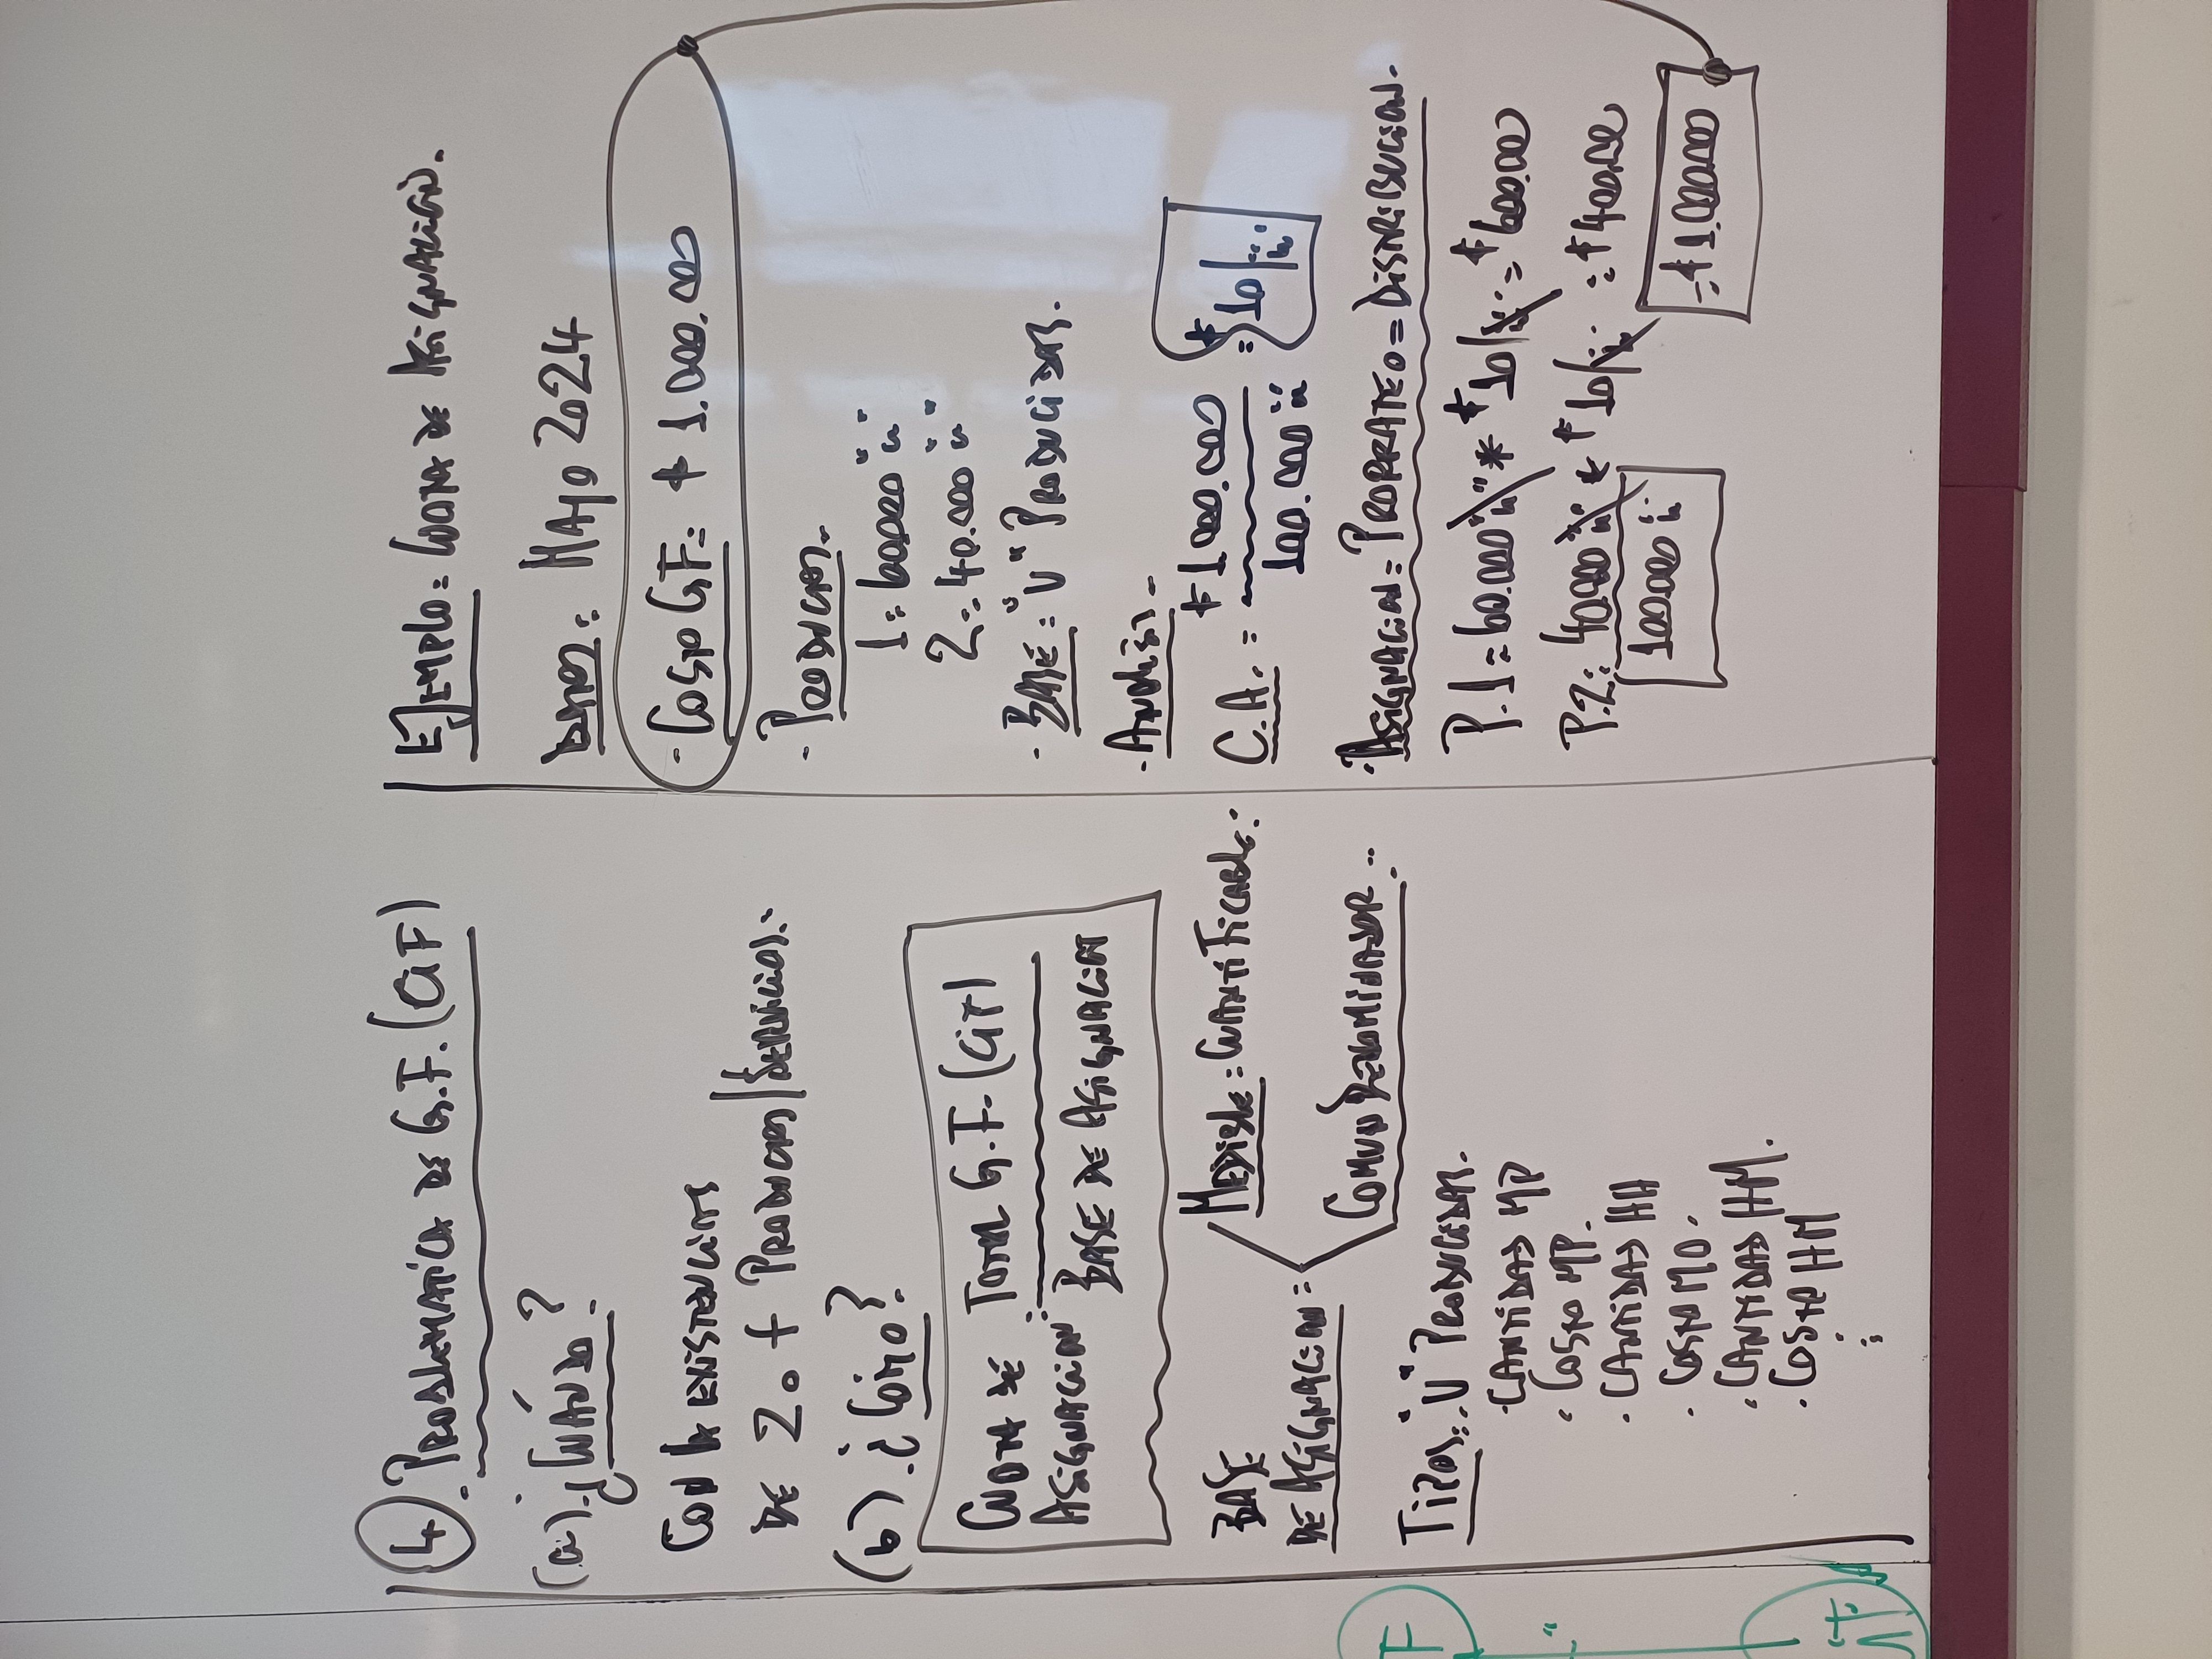 4. PROBLEMATICA DE G.F. (CIF)
(a). ¿CUÁNDO?
CON LA EXISTENCIAS
DE 2 o + PRODUCTOS/SERVICIOS.
(b). ¿CÓMO?
CUOTA DE ASIGNACION: TOTAL G.F. (CIF)
BASE DE ASIGNACION
BASE
DE ASIGNACION =
MEDIBLE = CUANTIFICABLE.
COMUN DENOMINADOR..
TIPOS: . "U" PRODUCIDAS.
· CANTIDAD MP
· COSTO MP.
· CANTIDAD HH
· COSTO MO.
· CANTIDAD HM.
· COSTO HM
F
"
EJEMPLO = CUOTA DE ASIGNACIÓN.
DATOS: MAYO 2024
· COSTO GF = $ 1.000.000
· PRODUCTOS.
1: 60000 "u"
2: 40.000 "u"
· BASE: "U" PRODUCIDAS.
· ANÁLISIS.
C.A. = $1.000.000
100.000 "u"
= $10/"u"
· ASIGNACION = PRORRATEO = DISTRIBUCION.
P.1 = 60.000 "u" * $10/"u" = $600.000
P.2: 40.000 "u" * $10/"u" = $400.000
100.000 "u"
= $1.000.000